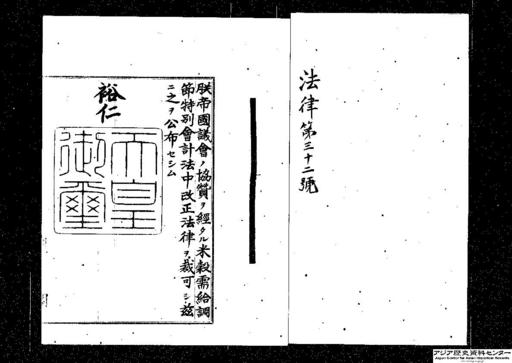 法律第三十二號
朕帝國議會ノ協賛ヲ經タル米穀需給調
節特別會計法中改正法律ヲ裁可シ茲
ニ之ヲ公布セシム
裕仁
天皇
御璽
アジア歴史資料センター
Japan Center for Asian Historical Records